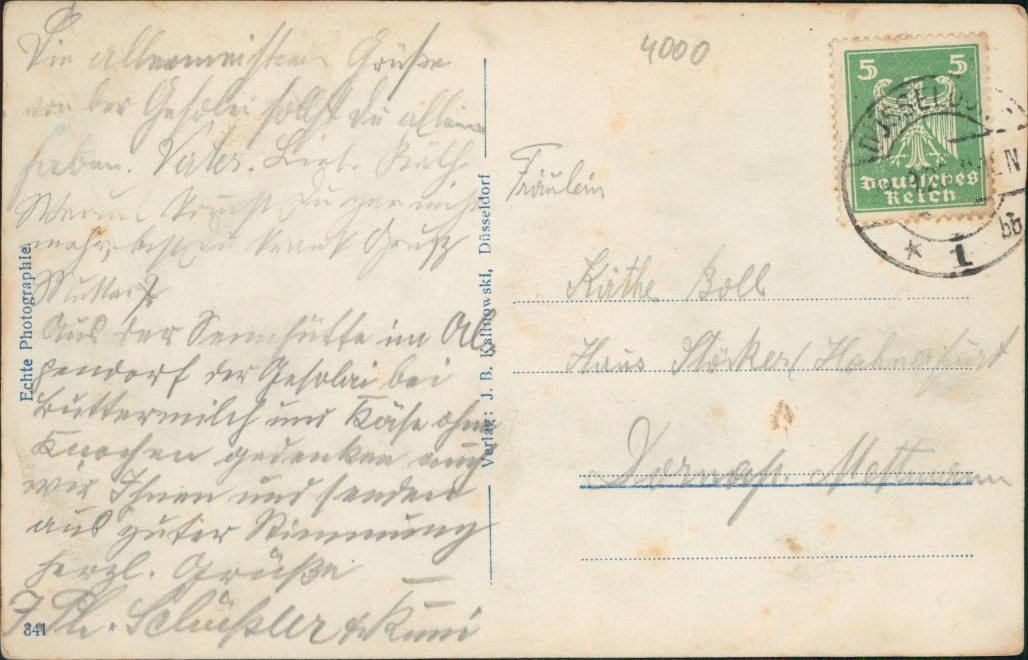 Die allermeisten Grüße
von der Gesolei sollst Du allein
haben. Vater. Käth
Warum Du gar nicht
mehr, bist Du krank Gruß
Mutter
Aus der Sennhütte im Al-
pendorf der Gesolei bei
Buttermilch und Käse ohne
Knochen gedenken auch
wir Ihnen und senden
aus guter Stimmung
herzl. Grüße
Echte Photographie.
341
Verlag: J. B. Kalinowski, Düsseldorf
4000
5 5
Deutsches
Reich
DÜSSELDORF
* 1 bb
Fräulein
Käthe Boll
Haus Stöcker Hahnenfurt
Dornap. Mettmann